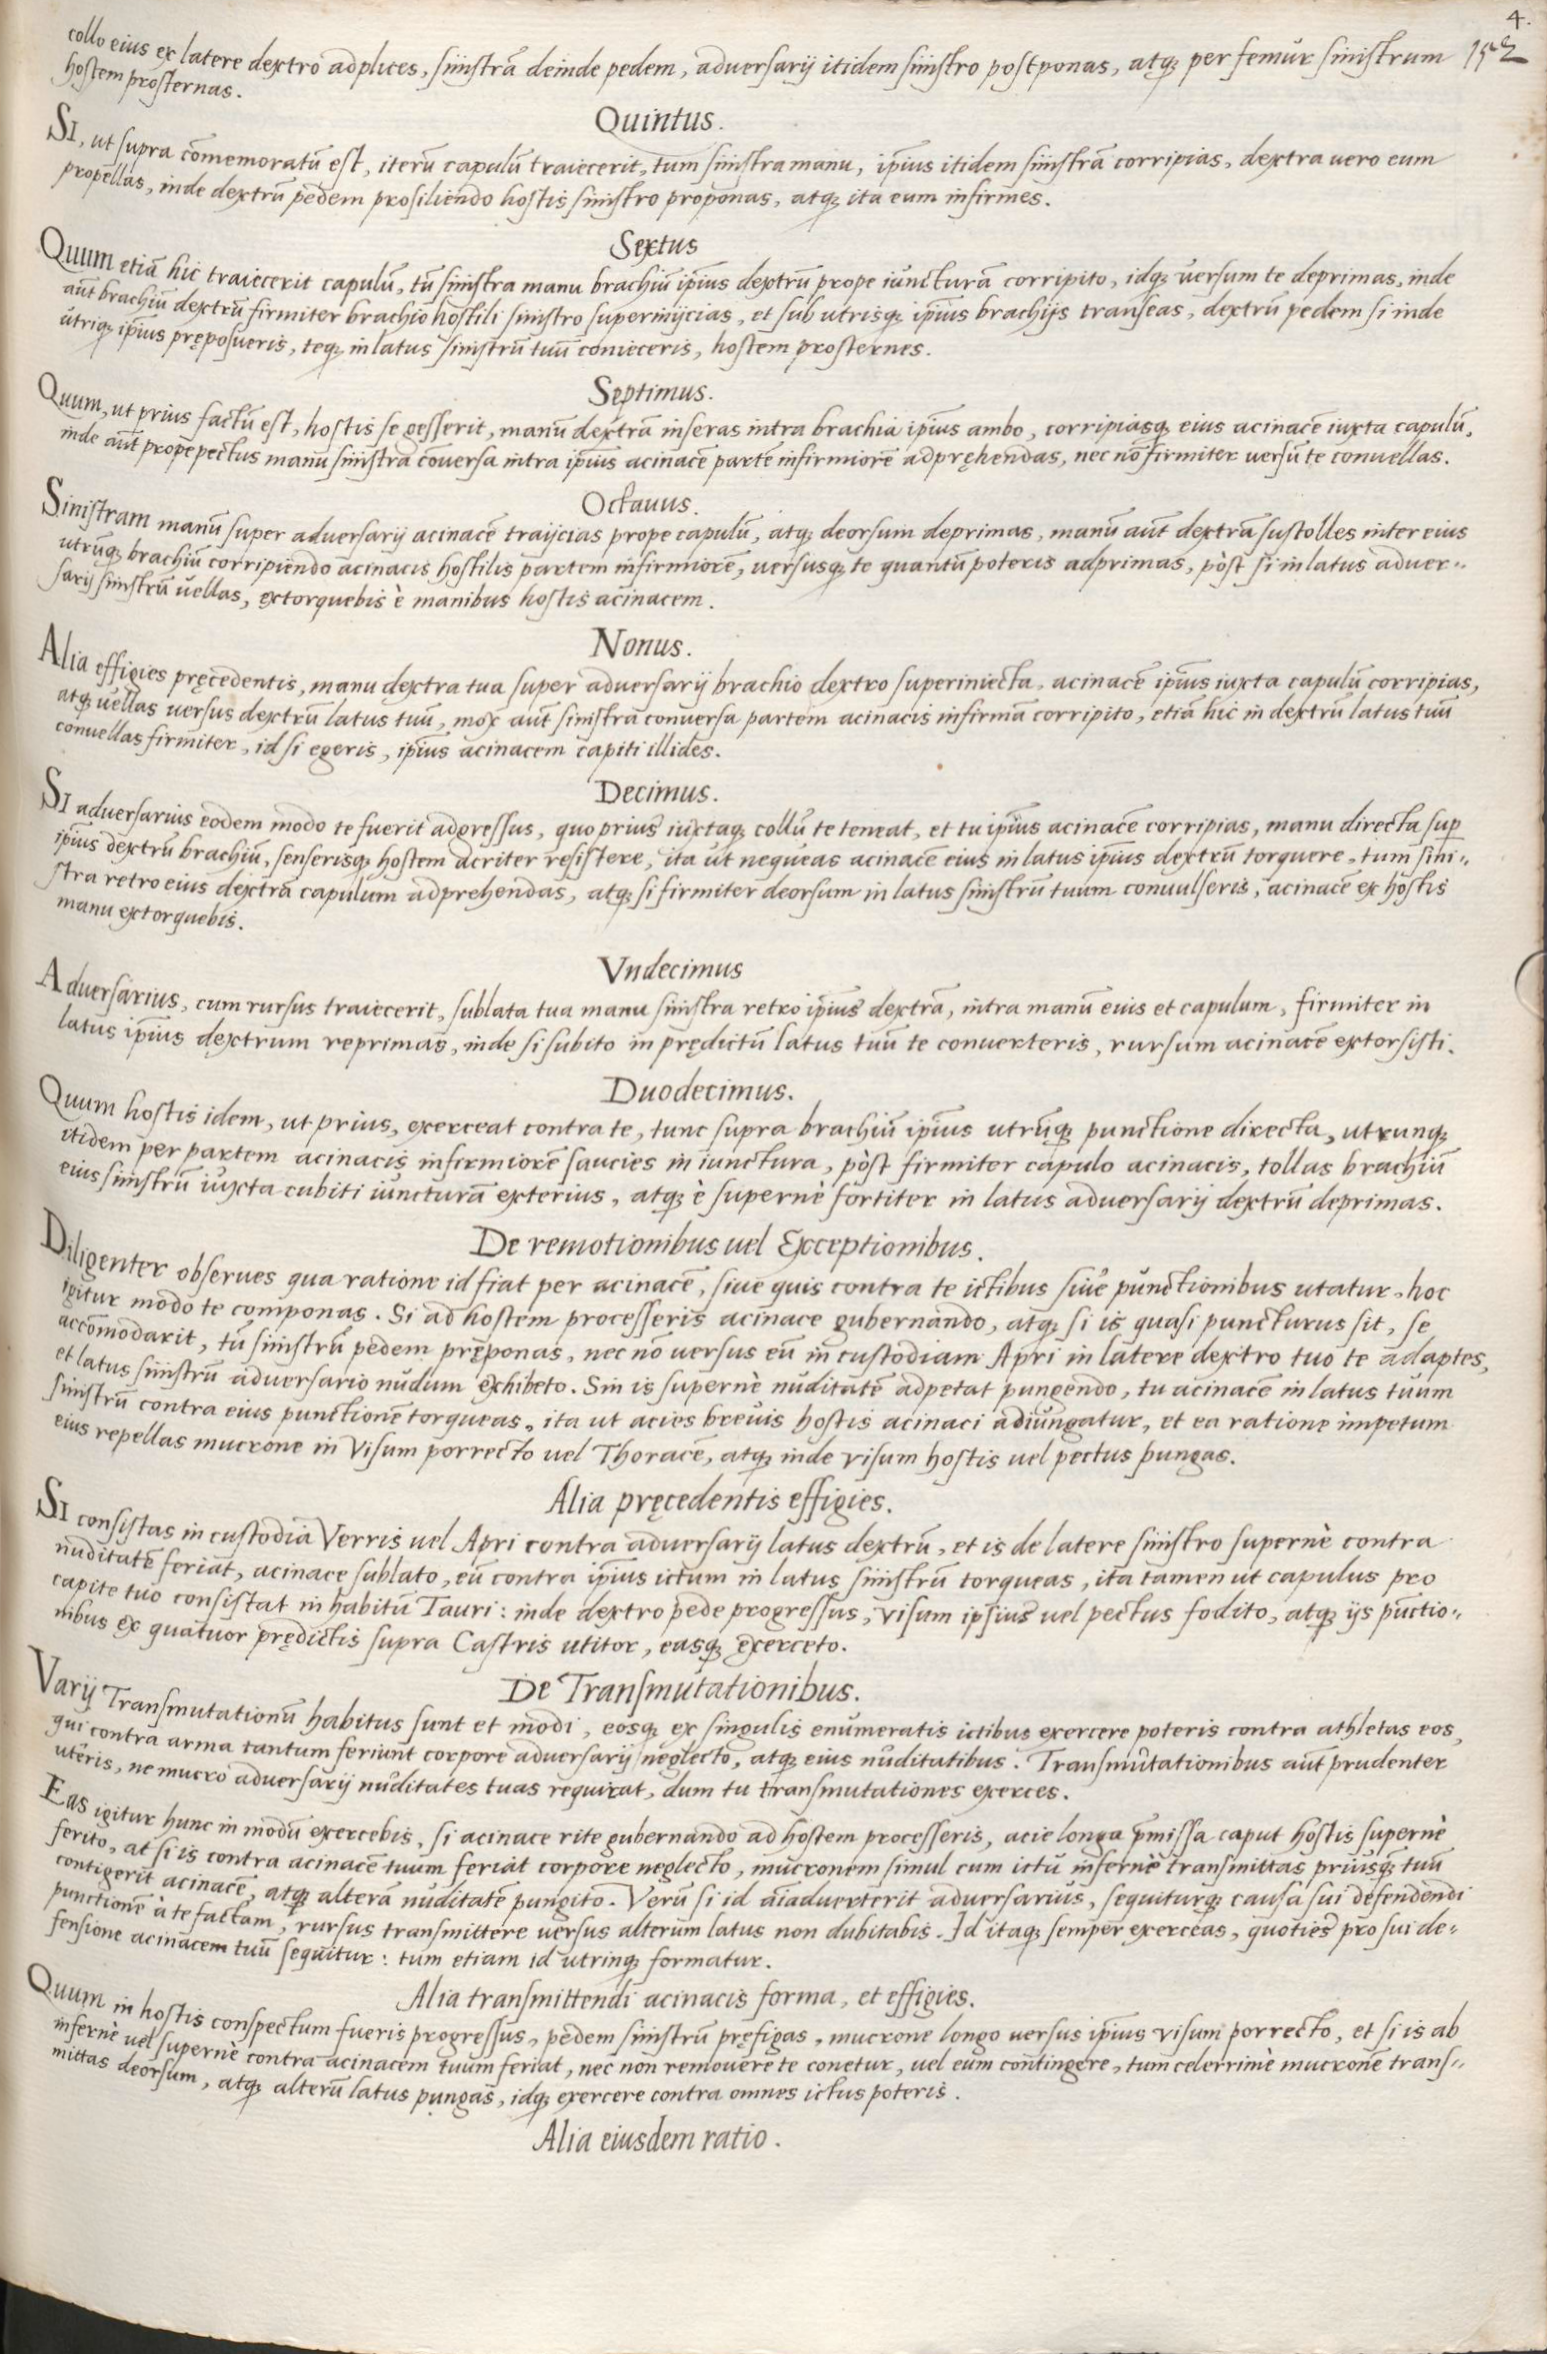 4.
152
collo eius ex latere dextro adplices, sinistrā deinde pedem, adversarij itidem sinistro postponas, atq3 per femur sinistrum
hostem prosternas.
Quintus.
SI, ut supra cōmemoratū est, iterū capulū traiecerit, tum sinistra manu, ip̄ius itidem sinistrā corripias, dextra uero eum
propellas, inde dextrū pedem prosiliendo hostis sinistro proponas, atq3 ita eum infirmes.
Sextus
Quum etiā hic traiecerit capulū, tū sinistra manu brachiū ip̄ius dextrū prope iuncturā corripito, idq3 versum te deprimas, inde
aūt brachiū dextrū firmiter brachio hostili sinistro superinijcias, et sub utrisq3 ip̄ius brachijs transeas, dextrū pedem si inde
utriq3 ip̄ius pręposueris, teq3 in latus sinistrū tuū conieceris, hostem prosternes.
Septimus.
Quum, ut prius factū est, hostis se gesserit, manū dextrā inseras intra brachia ip̄ius ambo, corripiasq3 eius acinacē iuxta capulū,
inde aūt prope pectus manū sinistrā cōversa intra ip̄ius acinacē partē infirmiorē adpręhendas, nec nō firmiter uersū te conuellas.
Octauus.
Sinistram manū super adversarij acinacē traijcias prope capulū, atq3 deorsum deprimas, manū aūt dextrā sustolles inter eius
utrūq3 brachiū corripiendo acinacis hostilis partem infirmiorē, uersusq3 te quantū poteris adprimas, pòst si in latus adver-
sarij sinistrū vellas, extorquebis è manibus hostis acinacem.
Nonus.
Alia effigies pręcedentis, manu dextra tua super adversarij brachio dextro superiniecta, acinacē ip̄ius iuxta capulū corripias,
atq3 vellas versus dextrū latus tuū, mox aūt sinistra conversa partem acinacis infirmā corripito, etiā hic in dextrū latus tuū
convellas firmiter, id si egeris, ip̄ius acinacem capiti illides.
Decimus.
SI adversarius eodem modo te fuerit adgressus, quo prius iuxtaq3 collū te teneat, et tu ip̄ius acinacē corripias, manu directa sup
ip̄ius dextrū brachiū, senserisq3 hostem acriter resistere, ita ut nequeas acinacē eius in latus ip̄ius dextrū torquere, tum sini-
stra retro eius dextrā capulum adprehendas, atq3 si firmiter deorsum in latus sinistrū tuum convulseris, acinacē ex hostis
manu extorquebis.
Vndecimus
Adversarius, cum rursus traiecerit, sublata tua manu sinistra retro ip̄ius dextrā, intra manū euis et capulum, firmiter in
latus ip̄ius dextrum reprimas, inde si subito in prędictū latus tuū te converteris, rursum acinacē extorsisti.
Duodecimus.
Quum hostis idem, ut prius, exerceat contra te, tunc supra brachiū ip̄ius utrūq3 punctione directa, utrunq3
itidem per partem acinacis infirmiorē saucies in iunctura, pòst firmiter capulo acinacis, tollas brachiū
eius sinistrū iuxta cubiti iuncturā exterius, atq3 è supernè fortiter in latus adversarij dextrū deprimas.
De remotionibus uel Exceptionibus.
Diligenter observes qua ratione id fiat per acinacē, siue quis contra te ictibus sive punctionibus utatur, hoc
igitur modo te componas. Si ad hostem processeris acinace gubernando, atq3 si is quasi puncturus sit, se
accōmodarit, tū sinistrū pedem pręponas, nec nō versus eū in custodiam Apri in latere dextro tuo te adaptes,
et latus sinistrū adversario nudum exhibeto. Sin is supernè nuditatē adpetat pungendo, tu acinacē in latus tuum
sinistrū contra eius punctionē torqueas, ita ut acies brevis hostis acinaci adiungatur, et ea ratione impetum
eius repellas mucrone in visum porrecto vel Thoracē, atq3 inde visum hostis uel pectus pungas.
Alia pręcedentis effigies.
SI consistas in custodia Verris uel Apri contra adversarij latus dextrū, et is de latere sinistro supernè contra
nuditatē feriat, acinace sublato, eū contra ip̄ius ictum in latus sinistrū torqueas, ita tamen ut capulus pro
capite tuo consistat in habitū Tauri: inde dextro pede progressus, visum ipsius uel pectus fodito, atq3 ijs pūctio-
nibus ex quatuor prędictis supra Castris utitor, easq3 exerceto.
De Transmutationibus.
Varij Transmutationū habitus sunt et modi, eosq3 ex singulis enumeratis ictibus exercere poteris contra athletas eos,
qui contra arma tantum feriunt corpore adversarij neglecto, atq3 eius nuditatibus. Transmutationibus aūt prudenter
utêris, ne mucro adversarij nuditates tuas requirat, dum tu transmutationes exerces.
Eas igitur hunc in modū exercebis, si acinace rite gubernando ad hostem processeris, acie longa p̄missa caput hostis supernè
ferito, at si is contra acinacē tuum feriat corpore neglecto, mucronem simul cum ictu infernè transmittas priusq̄ tuū
contigerit acinacē, atq3 alterā nuditatē pungito. Verū si id aīadverterit adversarius, sequiturq3 causa sui defendendi
punctionē à te factam, rursus transmittere versus alterum latus non dubitabis. Id itaq3 semper exerceas, quoties pro sui de-
fensione acinacem tuū sequitur: tum etiam id utrinq3 formatur.
Alia transmittendi acinacis forma, et effigies.
Quum in hostis conspectum fueris progressus, pedem sinistrū pręfigas, mucrone longo versus ip̄ius visum porrecto, et si is ab
infernè vel supernè contra acinacem tuum feriat, nec non removere te conetur, vel eum contingere, tum celerrimè mucronē trans-
mittas deorsum, atq3 alterū latus pungas, idq3 exercere contra omnes ictus poteris.
Alia eiusdem ratio.